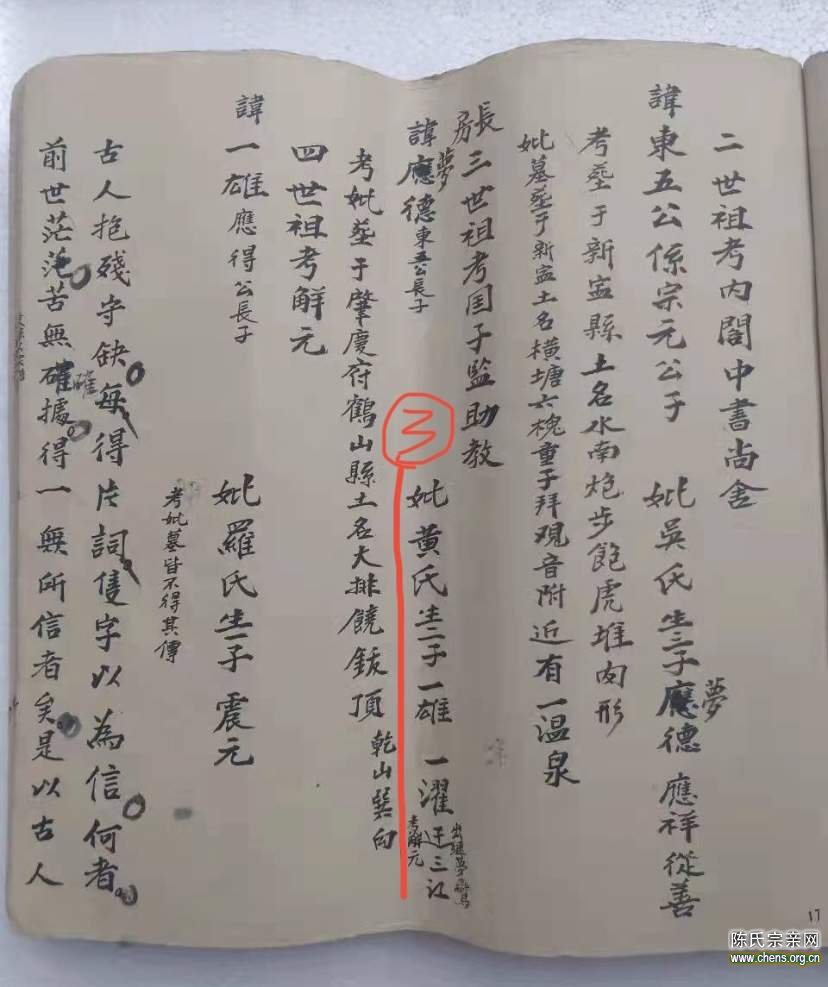 二世祖考内閣中書尚舍
諱東五公係宗元公子 妣吳氏生三子應德 應祥 從善
夢
考墓于新寍縣土名水南炮步飽虎堆肉形
妣墓塟于新寍土名橫塘六槐童子拜观音附近有一温泉
長房三世祖考国子監助教
諱應德東五公長子 妣黄氏生二子一雄 一濯迁三江
夢
出繼夢
考解元
考妣塟于肇慶府鶴山縣土名大排饒鈸頂 乾山巽向
四世祖考解元
諱一雄應得公長子 妣羅氏生一子震元
考妣墓皆不得其傳
古人抱殘守缺每得片詞隻字以為信何者
前世茫茫苦無確據得一無所信者矣是以古人
確
3
17
陈氏宗亲网
www.chens.org.cn